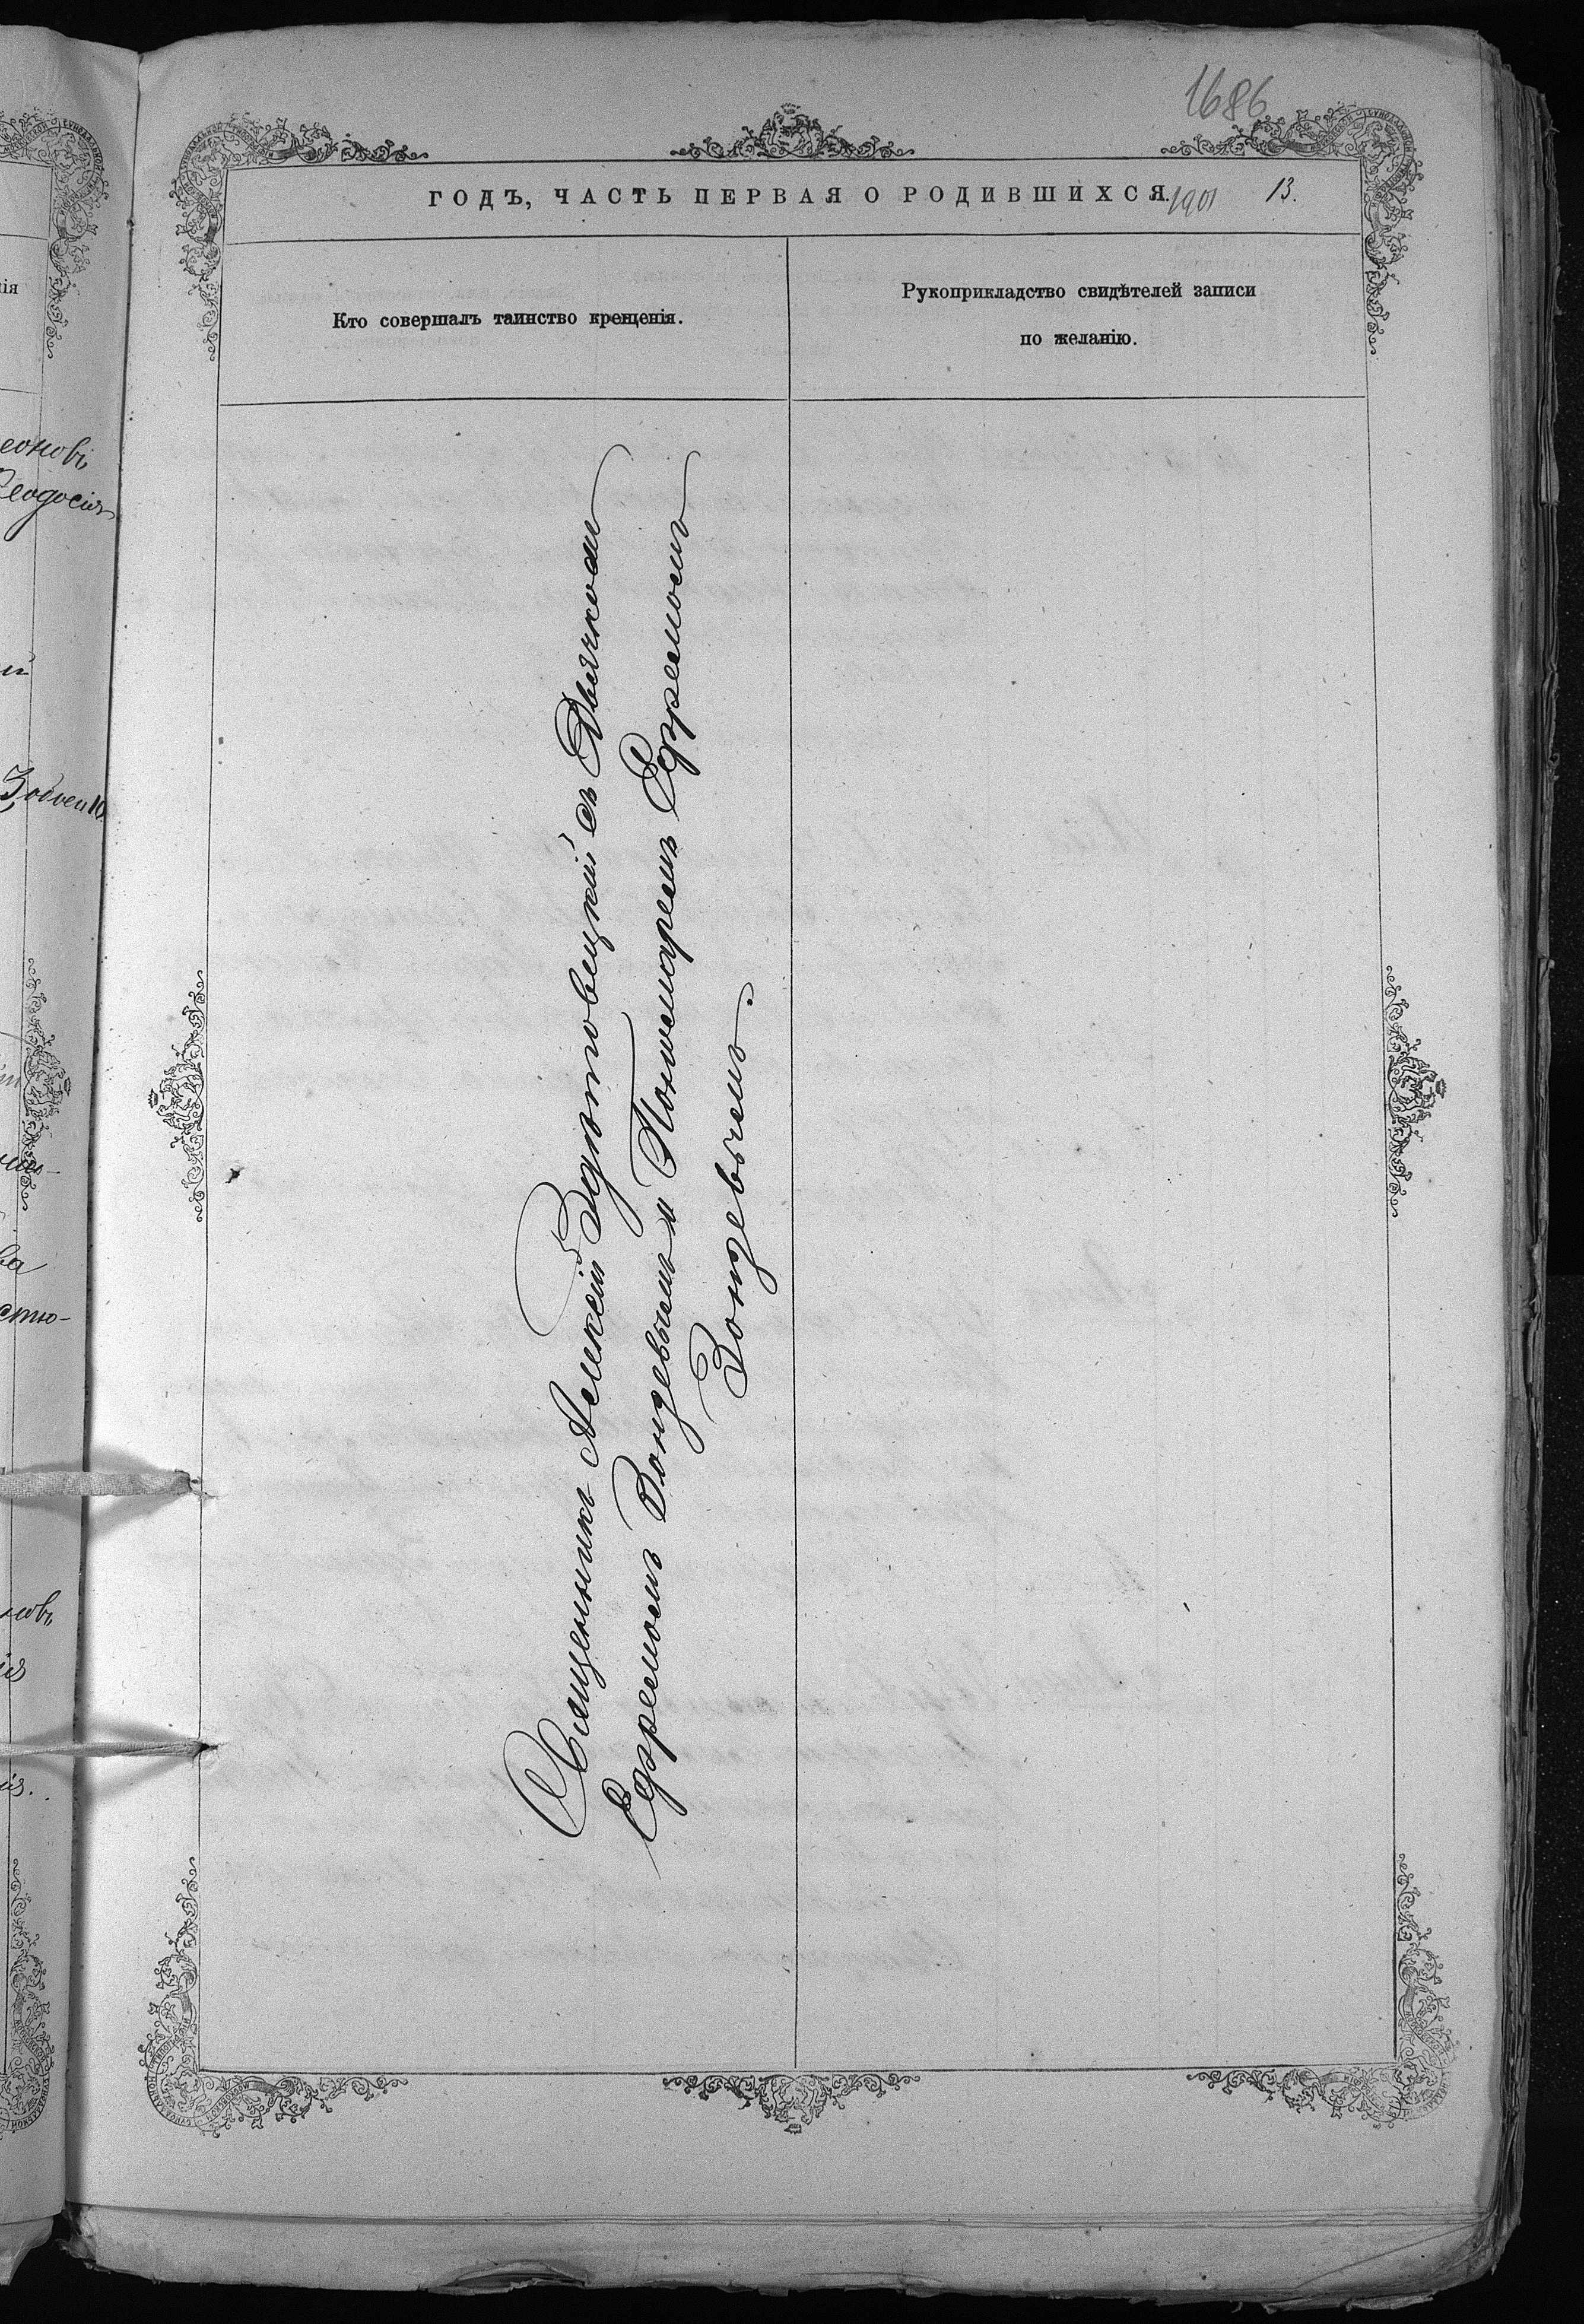 1686
ГОДЪ, ЧАСТЬ ПЕРВАЯ О РОДИВШИХСЯ. 1901 13.
Кто совершалъ таинство крещенія.
Рукоприкладство свидѣтелей записи
по желанію.
Священникъ Алексій Здѣтовецкій съ Дьячкомъ
Ефремомъ Зонзевымъ и Пономаремъ Ефремомъ
Зонзевымъ.
еонові
Ѳеодосія
ва
стю-